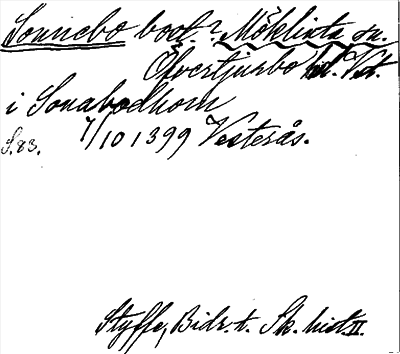 Sonnebo bost.? Möklinta sn.
Övertjurbo hd. Vst.
i Sonabodhom
S.83. 7/10 1399 Vesterås.
Styffe, Bidr. t. Sk. hist. II.